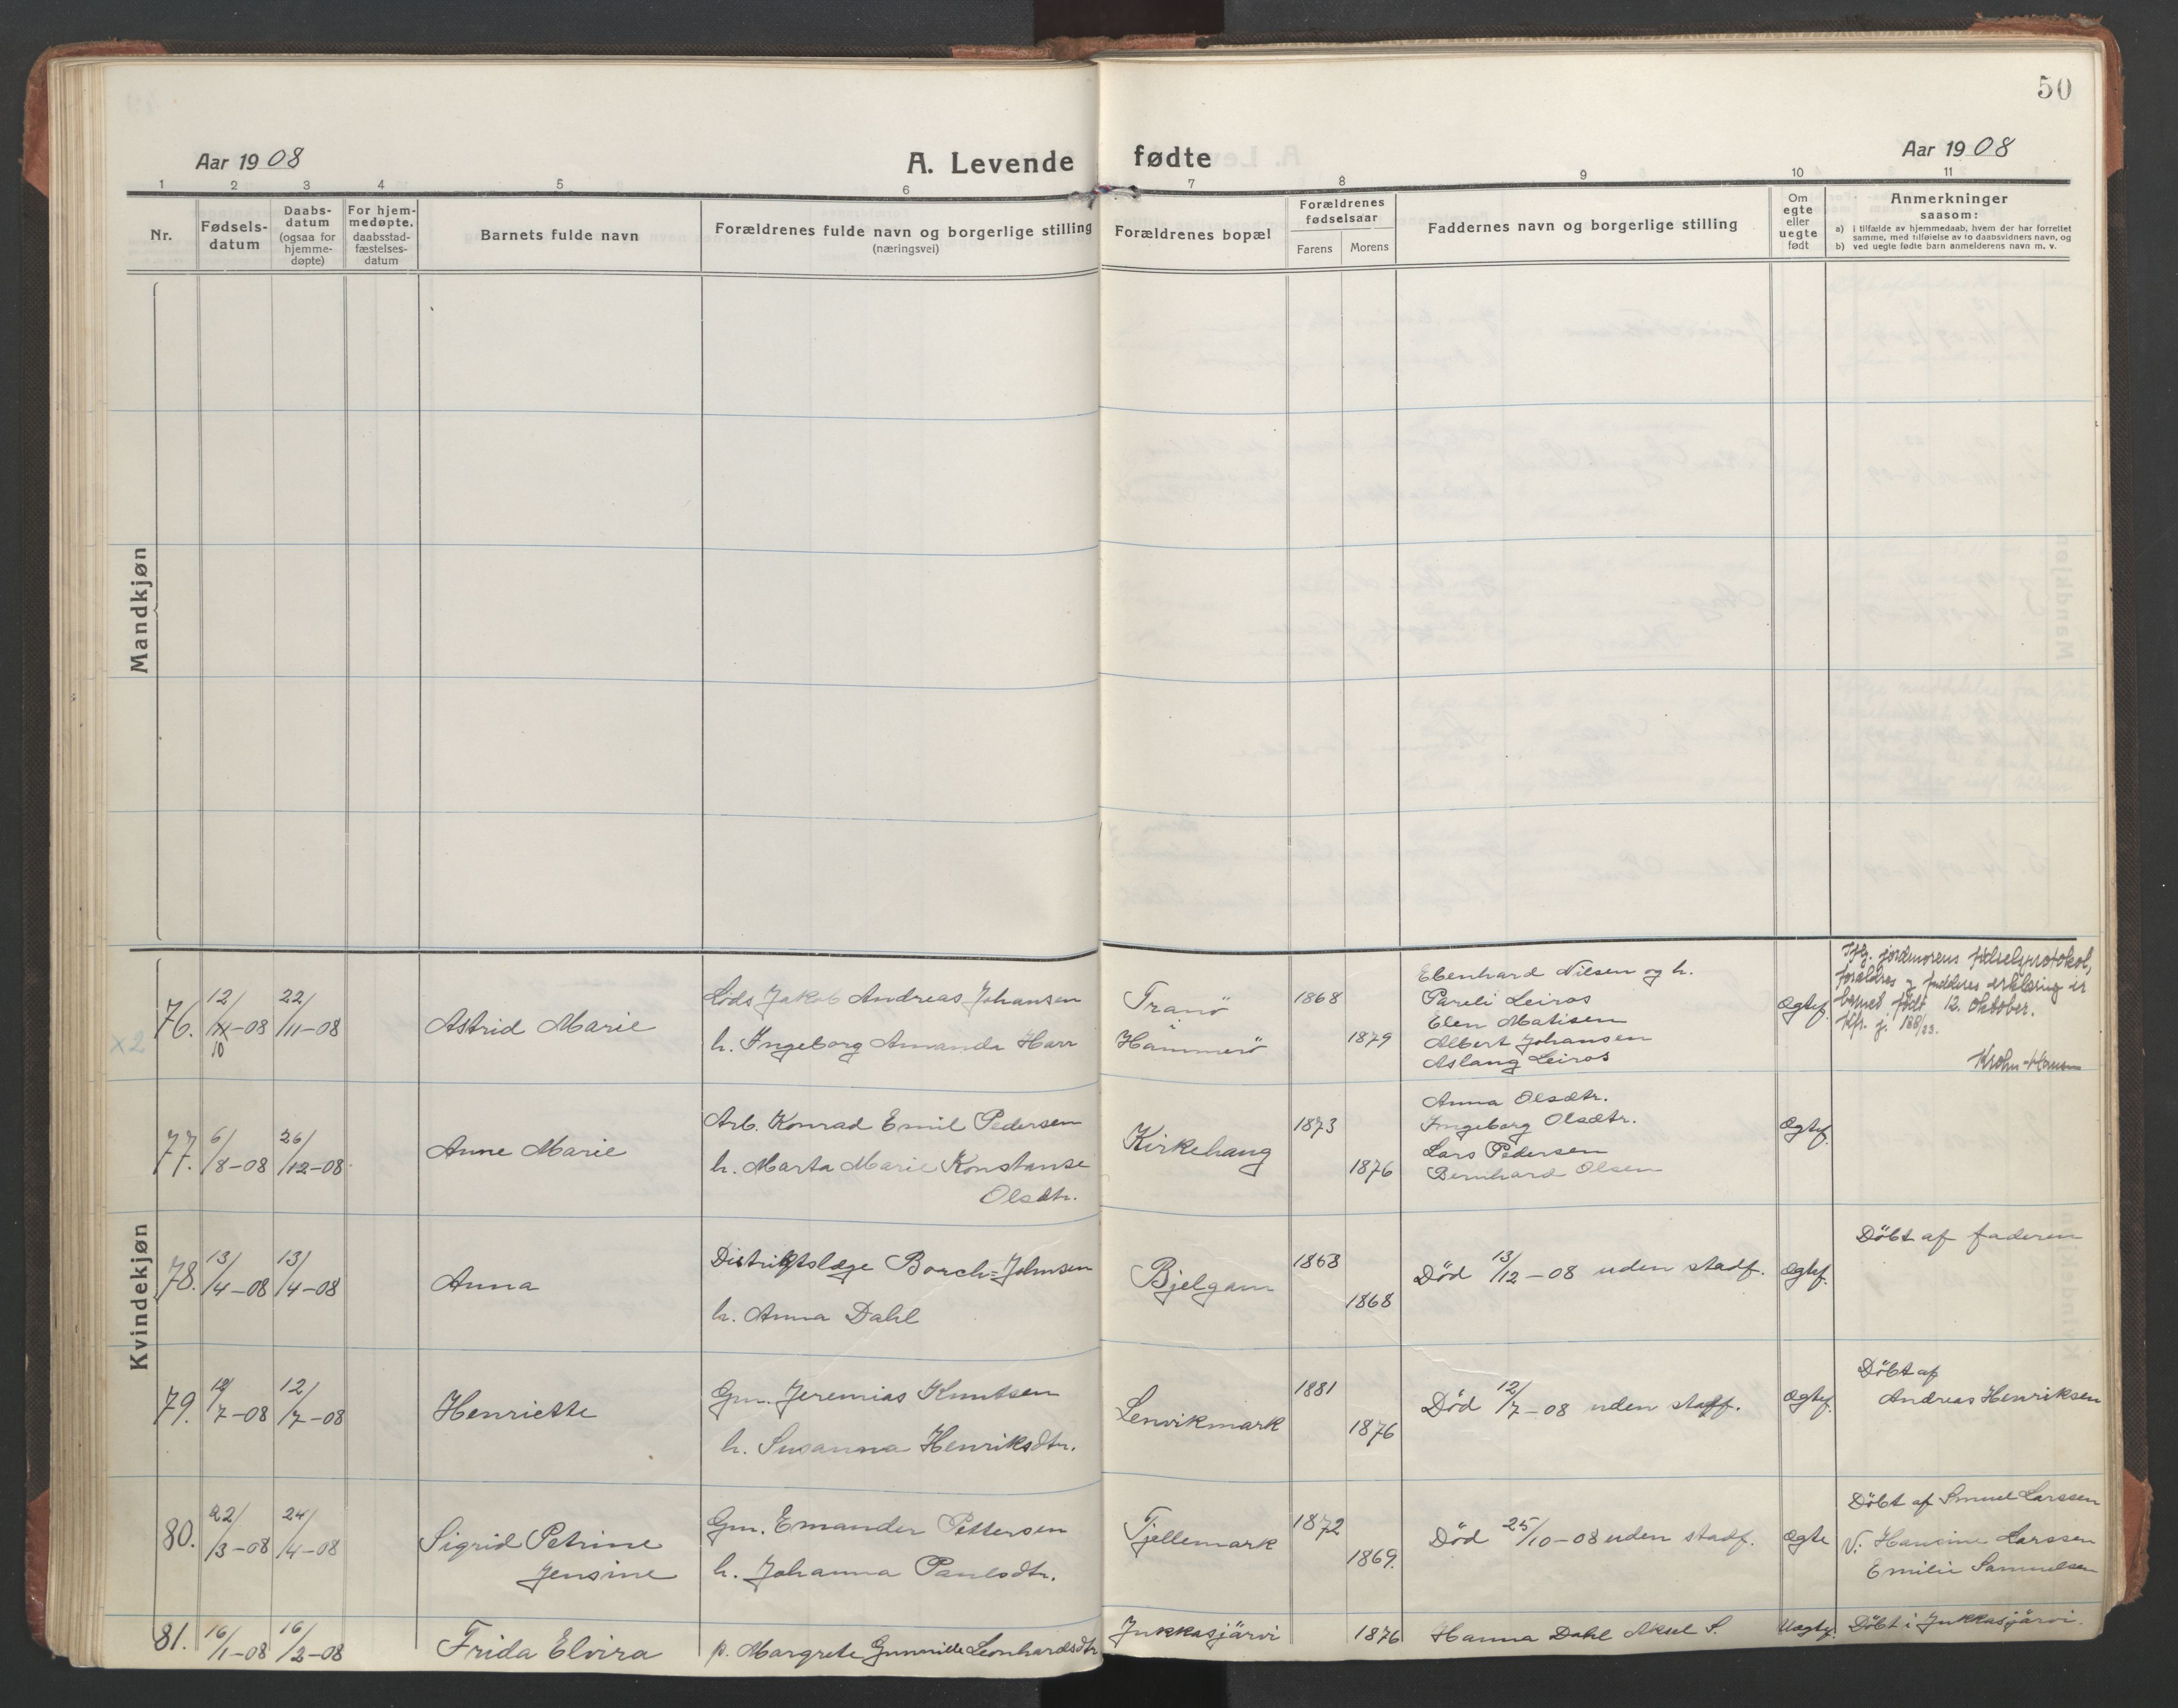 50
Aar 1908
A. Levende fødte
Aar 1908
1 2 3 4 5 6 7 8 9 10 11
Nr.
Fødsels-
datum
Daabs-
datum
(ogsaa for
hjemme-
døpte)
For hjem-
medøpte.
daabsstad-
fæstelses-
datum
Barnets fulde navn
Forældrenes fulde navn og borgerlige stilling
(næringsvei)
Forældrenes bopæl
Forældrenes
fødselsaar
Farens Morens
Faddernes navn og borgerlige stilling
Om
egte
eller
uegte
født
Anmerkninger
saasom:
a) i tilfælde av hjemmedaab, hvem der har forrettet
samme, med tilføielse av to daabsvidners navn, og
b) ved uegte fødte barn anmelderens navn m. v.
Mandkjøn
Kvindekjøn
x2
76.
12/
-08
10
22/
11-08
Astrid Marie
Lods Jakob Andreas Johansen
h. Ingeborg Amanda Harr
Tranö
Hammerö
1868
1879
Ebenhard Nilsen og h.
Pareli Leiros
Elen Matisen
Albert Johansen
Aslaug Leiros
Ægtef.
Iflg. jordmorens fødselsprotokol,
forældres og fadderes erklæring er
barnet født 12. oktober.
Kfr. j. 188/23.
Krohn-Hansen
77.
6/
8-08
26/
12-08
Anne Marie
Arb. Konrad Emil Pedersen
h. Marta Marie Konstanse
Olsdtr.
Kirkehaug
1873
1876
Anna Olsdtr.
Ingeborg Olsdtr.
Lars Pedersen
Bernhard Olsen
Ægtef.
78.
13/
4-08
13/
4-08
Anna
Distriktslæge Borch-Johnsen
h. Anna Dahl
Bjelgam
1863
1868
Død 13/12-08 uden stadf.
Ægtef.
Döbt af faderen
79.
12/
7-08
12/
7-08
Henriette
Gm. Jeremias Knutsen
h. Susanna Henriksdtr.
Lenvikmark
1881
1876
Död 12/7-08 uden staff.
Ægtef.
Döbt af
Andreas Henriksen
80.
22/
3-08
24/
4-08
Sigrid Petrine
Jensine
Gm. Emander Pettersen
h. Johanna Paulsdtr.
Fjellemark
1872
1869.
Död 25/10-08 uden stadf.
Ægte
Döbt af Smuel Larssen
V: Hansine Larssen
Emilie Samuelsen
81.
16/
1-08
16/
2-08
Frida Elvira
p. Margrete Gunnille Leonhardsdtr
Jukkasjärvi
1876
Hanna Dahl Aksel S.
Uægte.
Döbt i Jukkasjärvi.